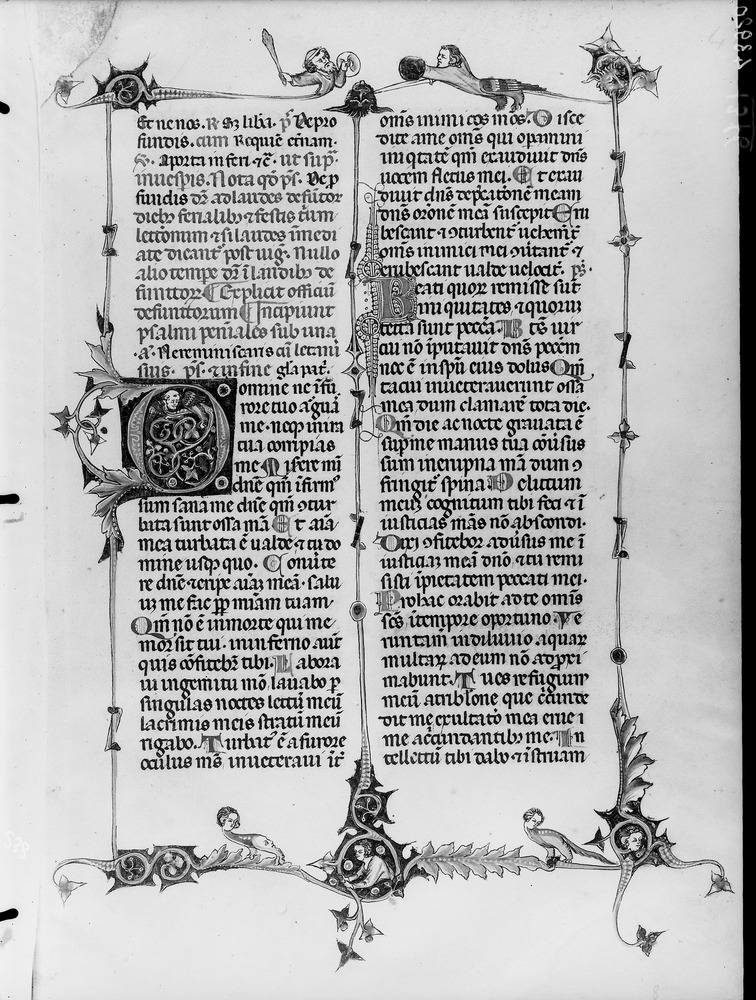 Et ne nos. R. Sȝ liba. p̄s̄ De pro
fundis. cum Requiē etnam.
V. A porta inferi ⁊c̄. ut sup͛.
in uesp̄is. Nota qd̄ p̄s̄. De p̄
fundis dr̄ ad laudes defūctor
diebȝ ferialibȝ ⁊ festis trium
lectionum ⁊ si laudes īmedi
ate dicant͛ post uig. Nullo
alio tempe dr̄ ī laudibȝ de
functor Explicit officiū
defunctorum Incipiunt
psalmi pēniales sub una
.a͛. Ne reminiscaris cū letani
suis. p̄s̄. ⁊ in fine gl̄a pat͛.
Domine ne ī fu
rore tuo arguā
me. neqȝ in ira
tua corripias
me Misere mī
dn̄e qm̄ ī firm͛
sum sana me dn̄e qm̄ ꝯtur
bata sunt ossa mā Et aīa
mea turbata ē ualde ⁊ tu do
mine usqȝ quo. Conūte
re dn̄e ⁊ eripe aīaȝ meā. saluū
me fac pp̄ miām tuam.
Qm̄ nō ē in morte qui me
mor sit tui. in inferno aūt
quis cōfitebr̄ tibi. Labora
ui in gemitu mō lauabo p̄
singulas noctes lectū meū
lacrimis meis stratū meū
rigabo. Turbat͛ ē a furore
oculus ms̄ inueteraui īt͛
om̄s inimicos mōs. Disce
dite a me om̄s qui opamini
iniqtatē qm̄ exaudiuit dn̄s
uocem fletus mei. Et exau
diuit dn̄s dep̄catōnē meam
dn̄s or̄onē meā suscepit Eru
bescant ⁊ ꝯturbent͛ uehemt͛
om̄s inimici mei ꝯūtant͛ ⁊
erubescant ualde uelocit͛. p̄s̄.
Beati quor remisse sūt
iniquitates ⁊ quorum
tecta sunt pecc̄a. Bt̄s uir
cui nō īputauit dn̄s pecc̄m
nec ē in sp̄u eius dolus Qm̄
tacui inueterauerunt ossa
mea dum clamarē tota die.
Qm̄ die ac nocte grauata ē
sup̄ me manus tua cōūsus
sum in erupna mā dum ꝯ
fringit͛ spina Delictum
meuȝ cognitum tibi feci ⁊ ī
iusticias mās nō abscondi.
Dixi ꝯfitebor adūsus me ī
iusticiaȝ meā dn̄o ⁊ tu remi
sisti īpietatem peccati mei.
Pro hac orabit ad te omīs
sc̄s ī tempore oportuno. Ve
runtam̄ in diluuio aquaꝝ
multaꝝ ad eum nō adp̄xi
mabunt. Tu es refugium
meū a tribl̄one que c̄cunde
dit me exultatō mea erue ī
me a c̄cundantibȝ me. In
tellectū tibi dabo ⁊ īstruam